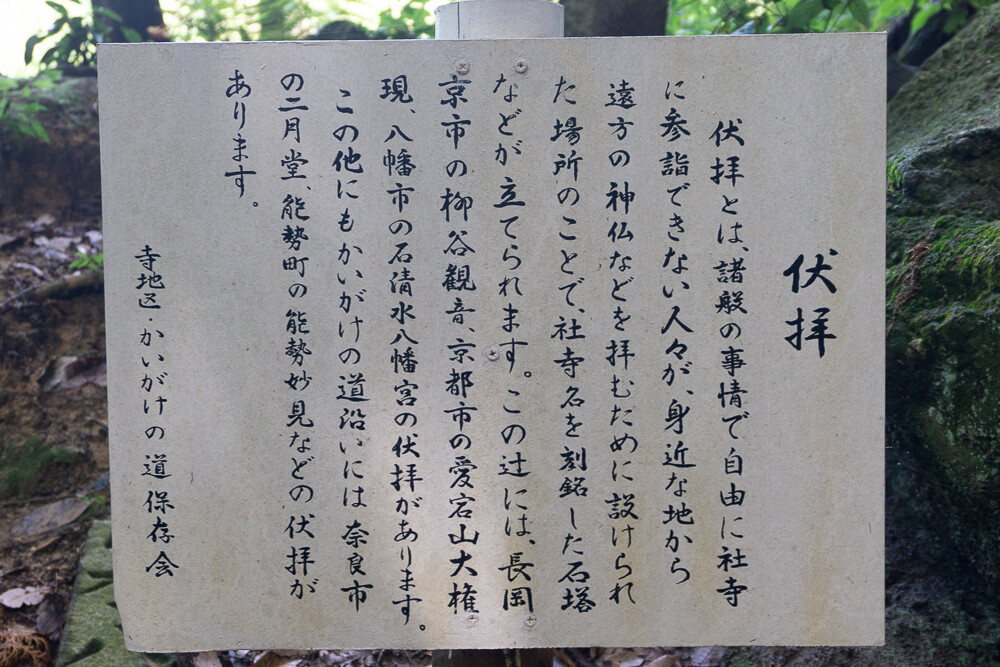 伏拝
伏拝とは、諸般の事情で自由に社寺
に参詣できない人々が、身近な地から
遠方の神仏などを拝むために設けられ
た場所のことで、社寺名を刻銘した石塔
などが立てられます。この辻には、長岡
京市の柳谷観音、京都市の愛宕山大権
現、八幡市の石清水八幡宮の伏拝があります。
この他にもかいがけの道沿いには奈良市
の二月堂、能勢町の能勢妙見などの伏拝が
あります。
寺地区・かいがけの道保存会